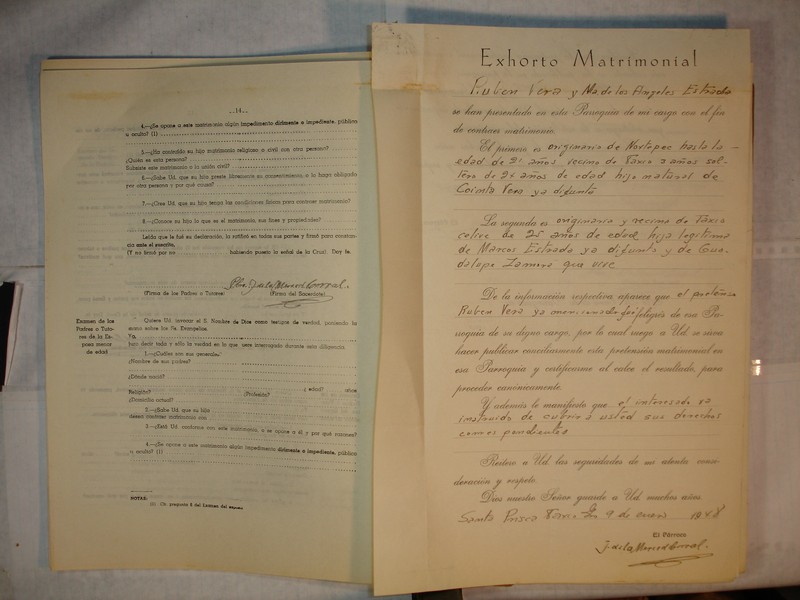 —14—
4.—¿Se opone a este matrimonio algún impedimento dirimente o impediente, público
u oculto? (1)
5.—¿Ha contraído su hijo matrimonio religioso o civil con otra persona?
¿Quién es esta persona?
Subsiste este matrimonio o la unión civil?
6.—¿Sabe Ud. que su hijo preste libremente su consentimiento o lo haya obligado
por otra persona y por qué causa?
7.—¿Cree Ud. que su hijo tenga las condiciones físicas para contraer matrimonio?
8.—¿Conoce su hijo lo que es el matrimonio, sus fines y propiedades?
Leída que le fué su declaración, la ratificó en todas sus partes y firmó para constan-
cia ante el suscrito.
(Y no firmó por no habiendo puesto la señal de la Cruz). Doy fe.
(Firma de los Padres o Tutores) (Firma del Sacerdote)
Examen de los
Padres o Tuto-
res de la Es-
posa menor
de edad
Quiere Ud. invocar el S. Nombre de Dios como testigo de verdad, poniendo la
mano sobre los Ss. Evangelios.
Yo,
juro decir toda y sólo la verdad en lo que fuere interrogado durante esta diligencia.
1.—¿Cuáles son sus generales?
¿Nombre de sus padres?
¿Dónde nació? ¿ edad? años
Religión? ¿Profesión?
¿Domicilio actual?
2.—¿Sabe Ud. que su hija
desea contraer matrimonio con
3.—¿Está Ud. conforme con este matrimonio, o se opone a él y por qué razones?
4.—¿Se opone a este matrimonio algún impedimento dirimente o impediente, público
u oculto? (1)
NOTAS:
(1) Cfr. pregunta 8 del Examen del esposo
Exhorto Matrimonial
Ruben Vera y Ma. de los Angeles Estrada
se han presentado en esta Parroquia de mi cargo con el fin
de contraer matrimonio.
El primero es originario de Noxtepec hasta la
edad de 21 años vecino de Taxco 3 años sol-
tero de 24 años de edad hijo natural de
Vera ya difunta
La segunda es originaria y vecina de Taxco
celive de 25 años de edad hija legitima
de Marcos Estrada ya difunto y de Gua-
dalupe Zamora que vive
De la información respectiva aparece que el pretenso
Ruben Vera ya mencionado feligrés de esa Pa-
rroquia de su digno cargo, por lo cual ruego a Ud. se sirva
hacer publicar conciliarmente esta pretensión matrimonial en
esa Parroquia y certificarme al calce el resultado, para
proceder canónicamente.
Y además le manifiesto que el interesado va
instruido de cubrir a usted sus derechos
correspondientes
Reitero a Ud. las seguridades de mi atenta consi-
deración y respeto.
Dios nuestro Señor guarde a Ud. muchos años.
Santa Prisca Taxco Gro 9 de enero 1948
El Párroco
J. de la Merced Corral.